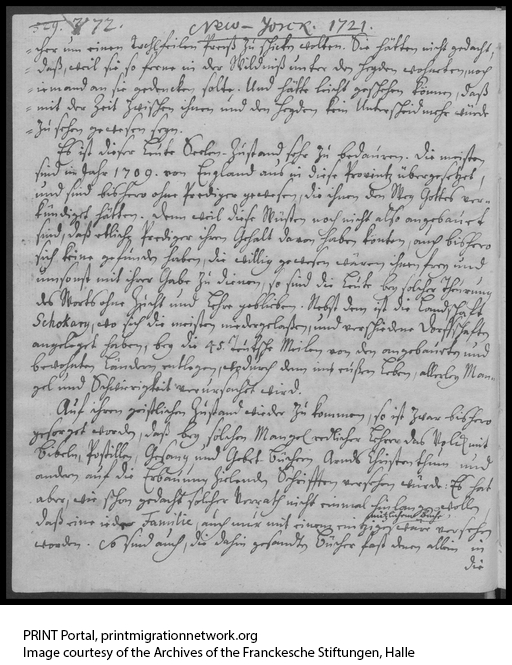 772. New-Yorck. 1721.
-cher um einen wohlfeilen Preiß zu schicken wolten. Sie hätten nicht gedacht,
-daß, weil sie so ferne in der Wildniß unter den Heyden wohneten, noch
-iemand an sie gedencken solte. Und hätte leicht geschehen können, daß
-mit der Zeit zwischen ihnen und den Heyden kein Unterscheid mehr würde
-zu sehen gewesen seyn.
Es ist dieser Leute Seelen-Zustand sehr zu bedauren. Die meisten
sind im Jahr 1709. von England aus in diese Provintz übergesetzet,
und sind bishero ohne Prediger gewesen, die ihnen den Weg Gottes ver-
kündiget hätten. Denn weil diese Wüsten noch nicht also angebauet
sind, daß etliche Prediger ihren Gehalt davon haben könten, auch bishero
sich keine gefunden haben, die willig gewesen wären ihnen frey und
umsonst mit ihrer Gabe zu dienen, so sind die Leute bey solcher Theurung
des Worts ohne Zucht und Lehre geblieben. Nebst dem ist die Landschafft
Schokary, wo sich die meisten niedergelassen, und verschiedene Dorffschafften
angeleget haben, bey die 45 Teutsche Meilen von den angebaueten und
bewohnten Ländern entlegen, wodurch dem äussern Leben, allerley Man-
gel und Schwierigkeit verursachet wird.
Auf ihren geistlichen Zustand wieder zu kommen, so ist zwar bishero
gesorget worden, daß bey solchen Mangel redlicher Lehrer das Volck mit
Bibeln, Postillen, Gesang und Gebet Büchern Arnds Christenthum und
andern auf die Erbauung zielenden Schrifften versehen würde: Es hat
aber, wie schon gedacht solcher Vorrath nicht einmal hinlangen wollen,
daß eine iede Familie, auch nur mit einem eintzigen nützlichen Buche wäre versehen
worden. Es sind auch, die dahin gesandten Bücher fast denen allein in
die
PRINT Portal, printmigrationnetwork.org
Image courtesy of the Archives of the Franckesche Stiftungen, Halle